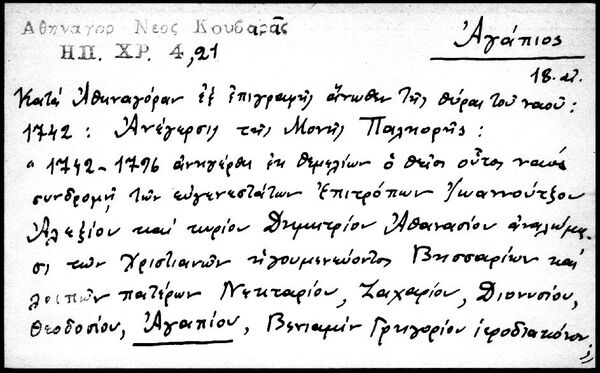 Αθηναγορ Νεος Κουβαρᾶς
ΗΠ. ΧΡ. 4,21
Ἀγάπιος
18. αἰ.
Κατά Ἀθηναγόραν ἐξ ἐπιγραφῆς ἄνωθεν τῆς θύρας τοῦ ναοῦ:
1742: Ἀνέγερσις τῆς Μονῆς Παλιορῆς:
"1742-1796 ἀνηγέρθη ἐκ θεμελίων ὁ θεῖος οὗτος ναός
συνδρομῇ τῶν εὐγενεστάτων Ἐπιτρόπων Ἰωαννούτζου
Ἀλεξίου καί κυρίου Δημητρίου Ἀθανασίου ἀναλώμα-
σι τῶν Χριστιανῶν ἡγουμενεύοντος Βησσαρίων καί
λοιπῶν πατέρων Νεκταρίου, Ζαχαρίου, Διονυσίου,
Θεοδοσίου, Ἀγαπίου, Βενιαμίν Γρηγορίου ἱεροδιακόνου;